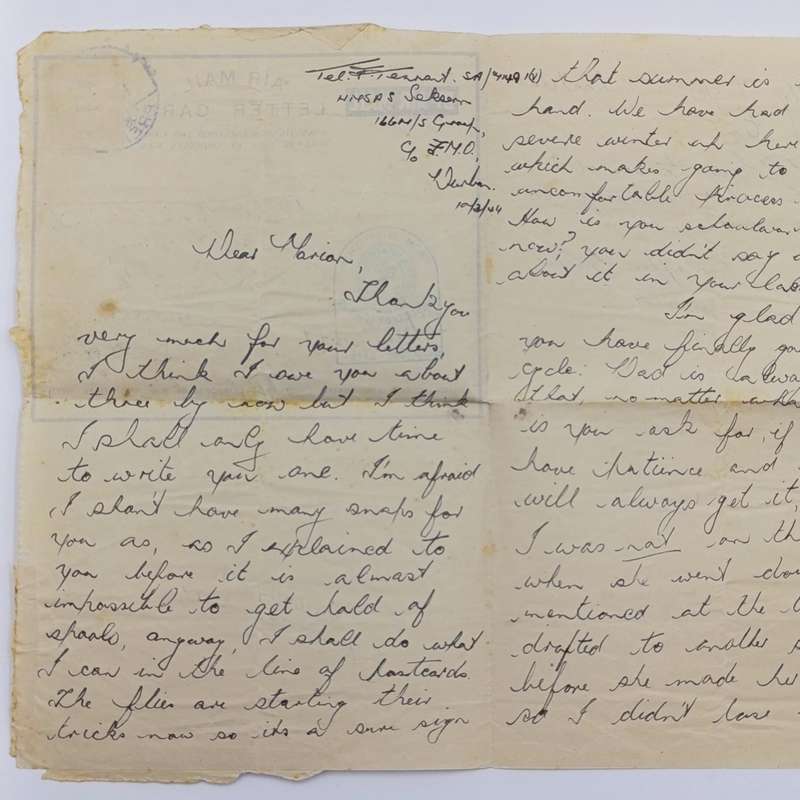 Tel. P. Tennant. SA/
HMSAS Seksern
166 M/S Group,
C/o F.M.O.,
Durban.
10/3/44
Dear Marion,
Thank you
very much for your letters,
I think I owe you about
three by now but I think
I shall only have time
to write you one. I'm afraid
I shan't have many snaps for
you as, as I explained to
you before it is almost
impossible to get hold of
spools, anyway, I shall do what
I can in the line of postcards.
The flies are starting their
tricks now so its a sure sign
that summer is
hand. We have had
severe winter here
which makes going to
uncomfortable process
How is you schoolwor
now? you didn't say a
about it in your
I'm glad
you have finally go
cycle. Dad is alwa
that, no matter wha
is you ask for, if
have patiince and
will always get it,
I was not on th
when she went dow
mentioned at the
drafted to another s
before she made her
so I didn't lose
AIR MAIL
LETTER CARD